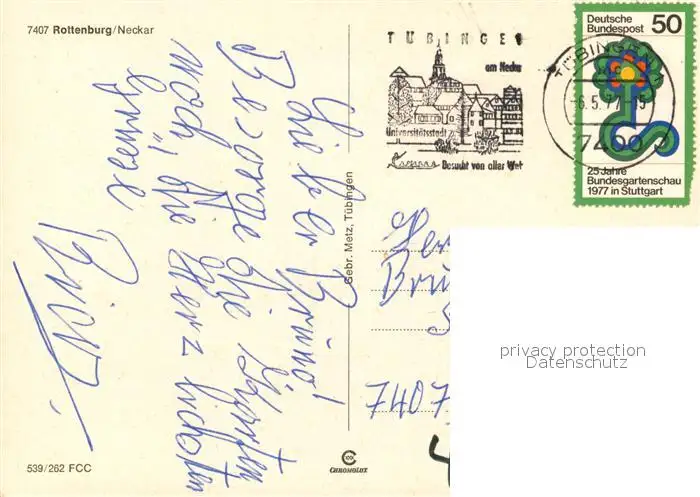 7407 Rottenburg/Neckar
Lieber Bruno!
Besorge die Karten
noch, die Herzlichsten
Grüsse
539/262 FCC
Gebr. Metz, Tübingen
CHROMOLUX
TÜBINGEN
am Neckar
Universitätsstadt
Besucht von aller Welt
TÜBINGEN 1
-6.5.77-15
7400
Deutsche
Bundespost 50
25 Jahre
Bundesgartenschau
1977 in Stuttgart
Her
Bru
7407
privacy protection
Datenschutz